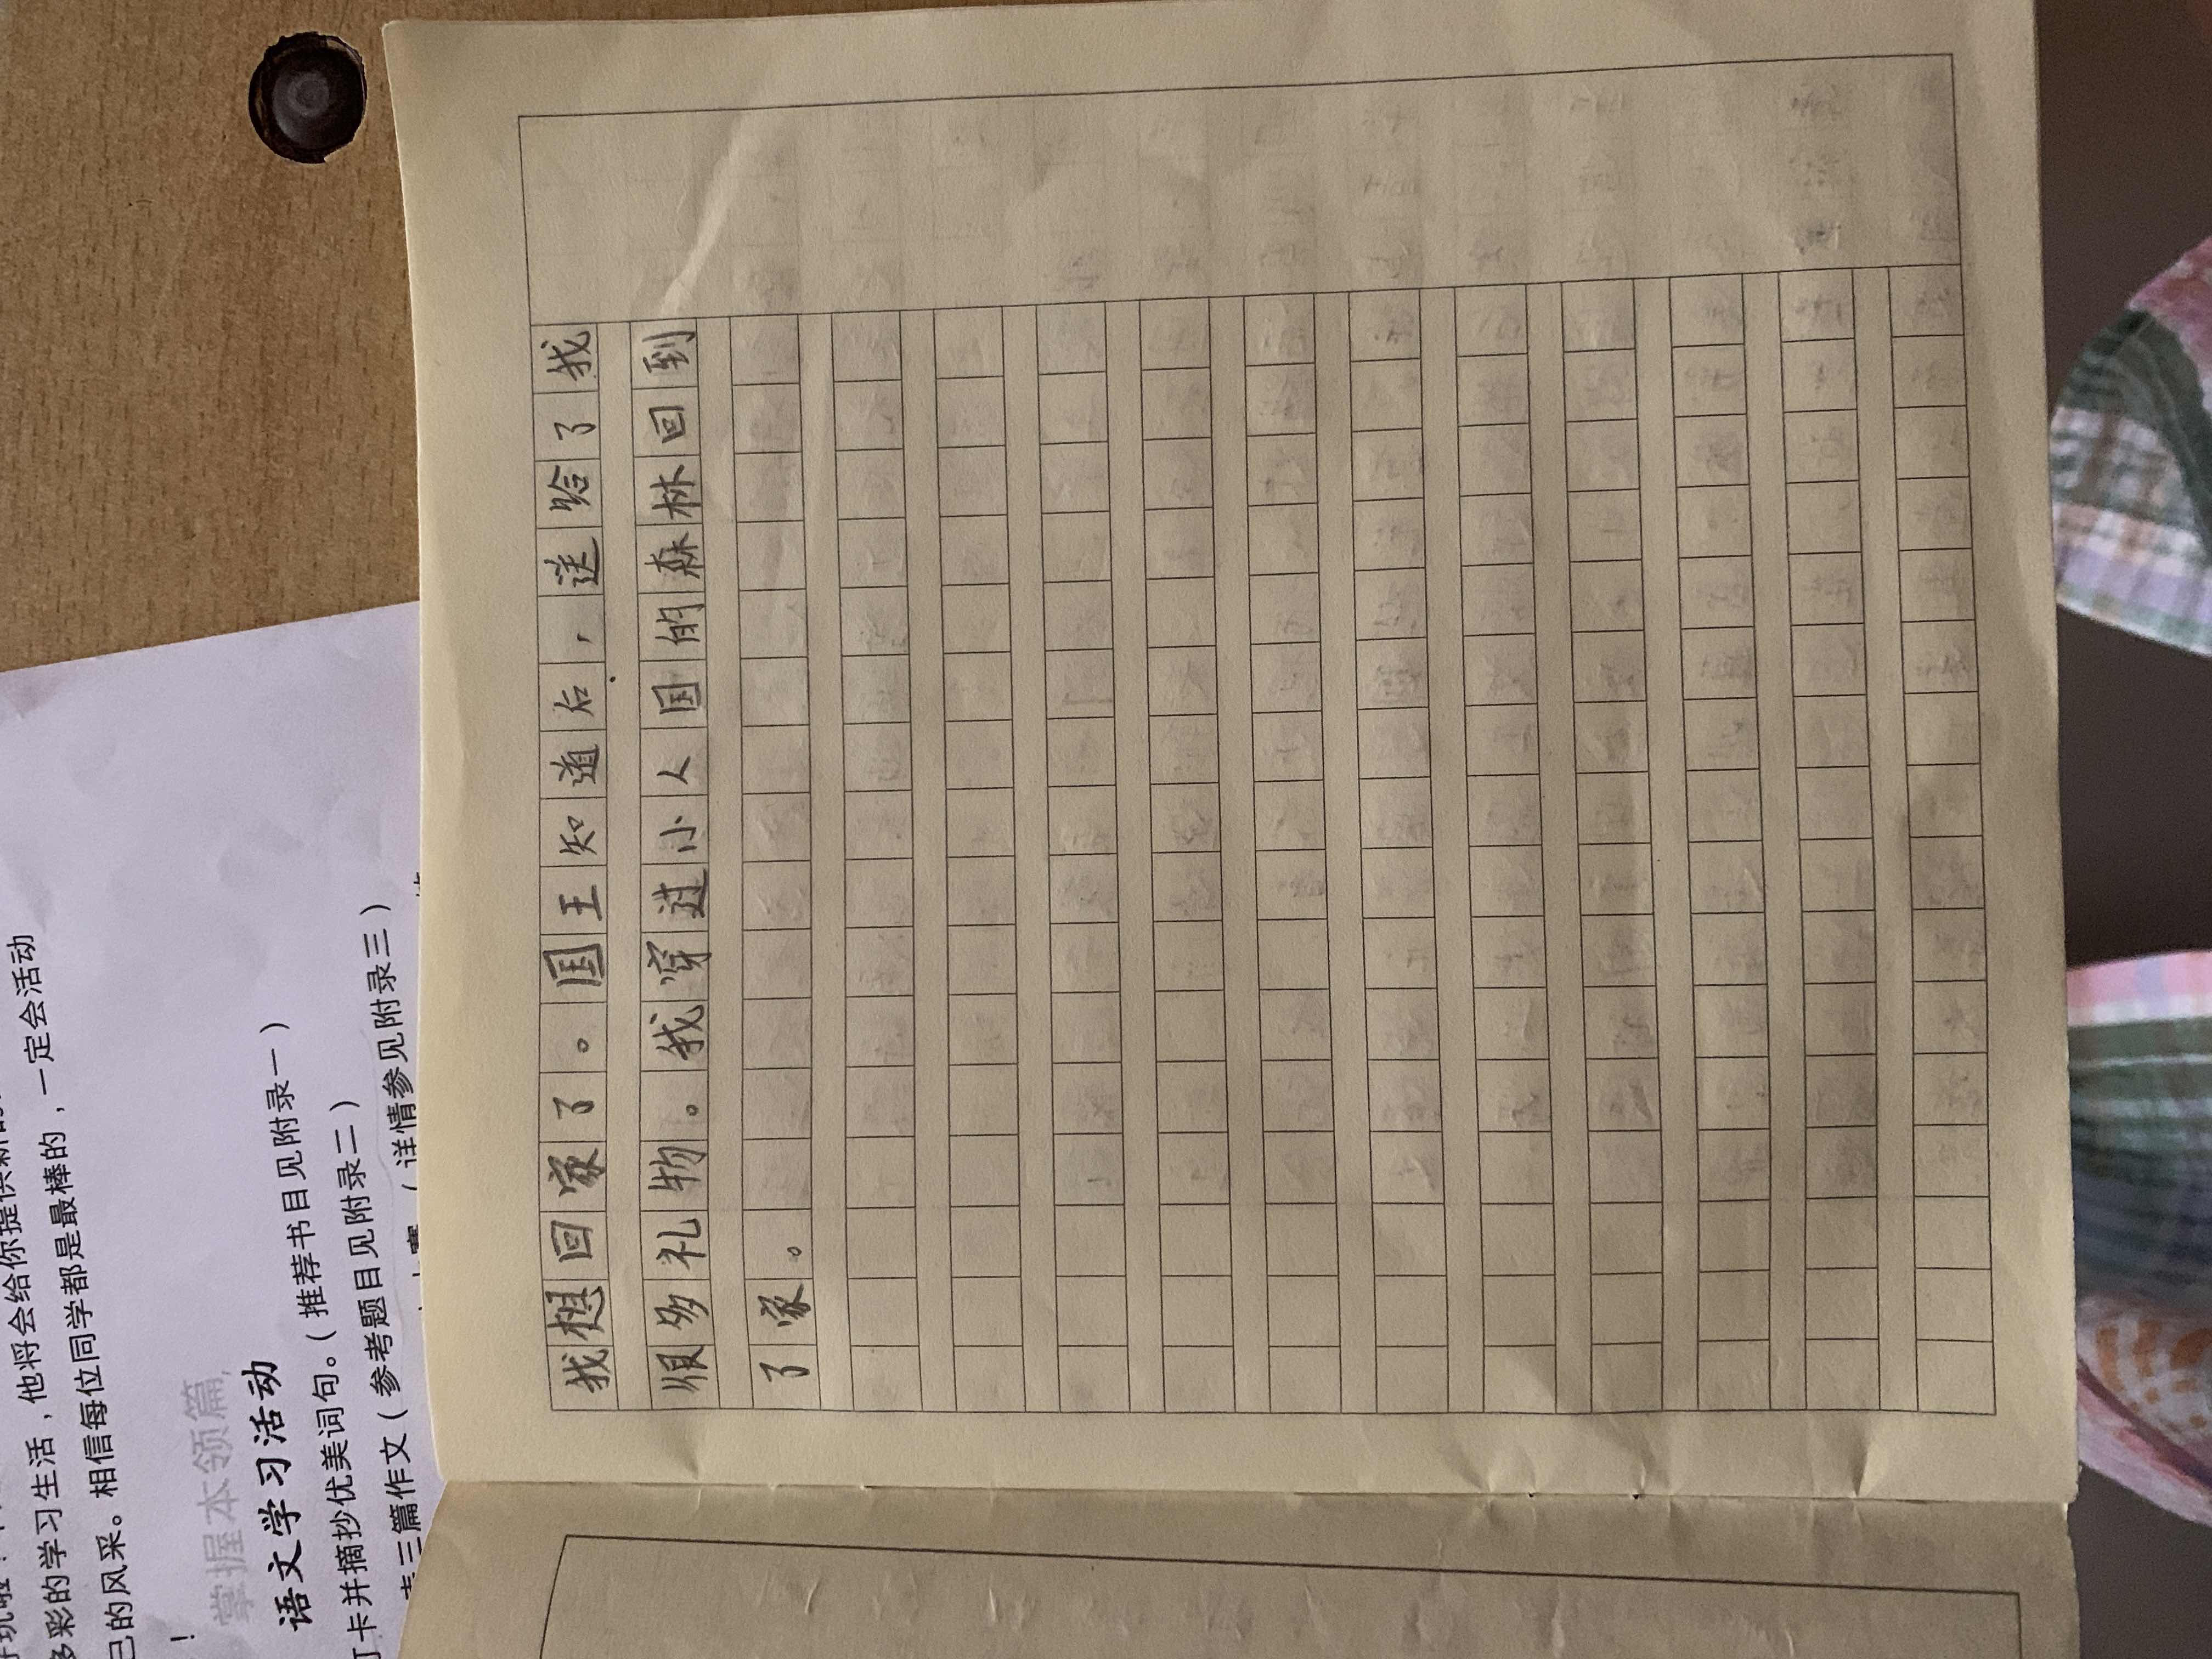 我想回家了。国王知道后，送给了我
很多礼物。我穿过小人国的森林回到
了家。
多彩的学习生活，他将会给你提供新的
己的风采。相信每位同学都是最棒的，一定会活动
！
掌握本领篇
语文学习活动
打卡并摘抄优美词句。（推荐书目见附录一）
三篇作文（参考题目见附录二）
（详情参见附录三）